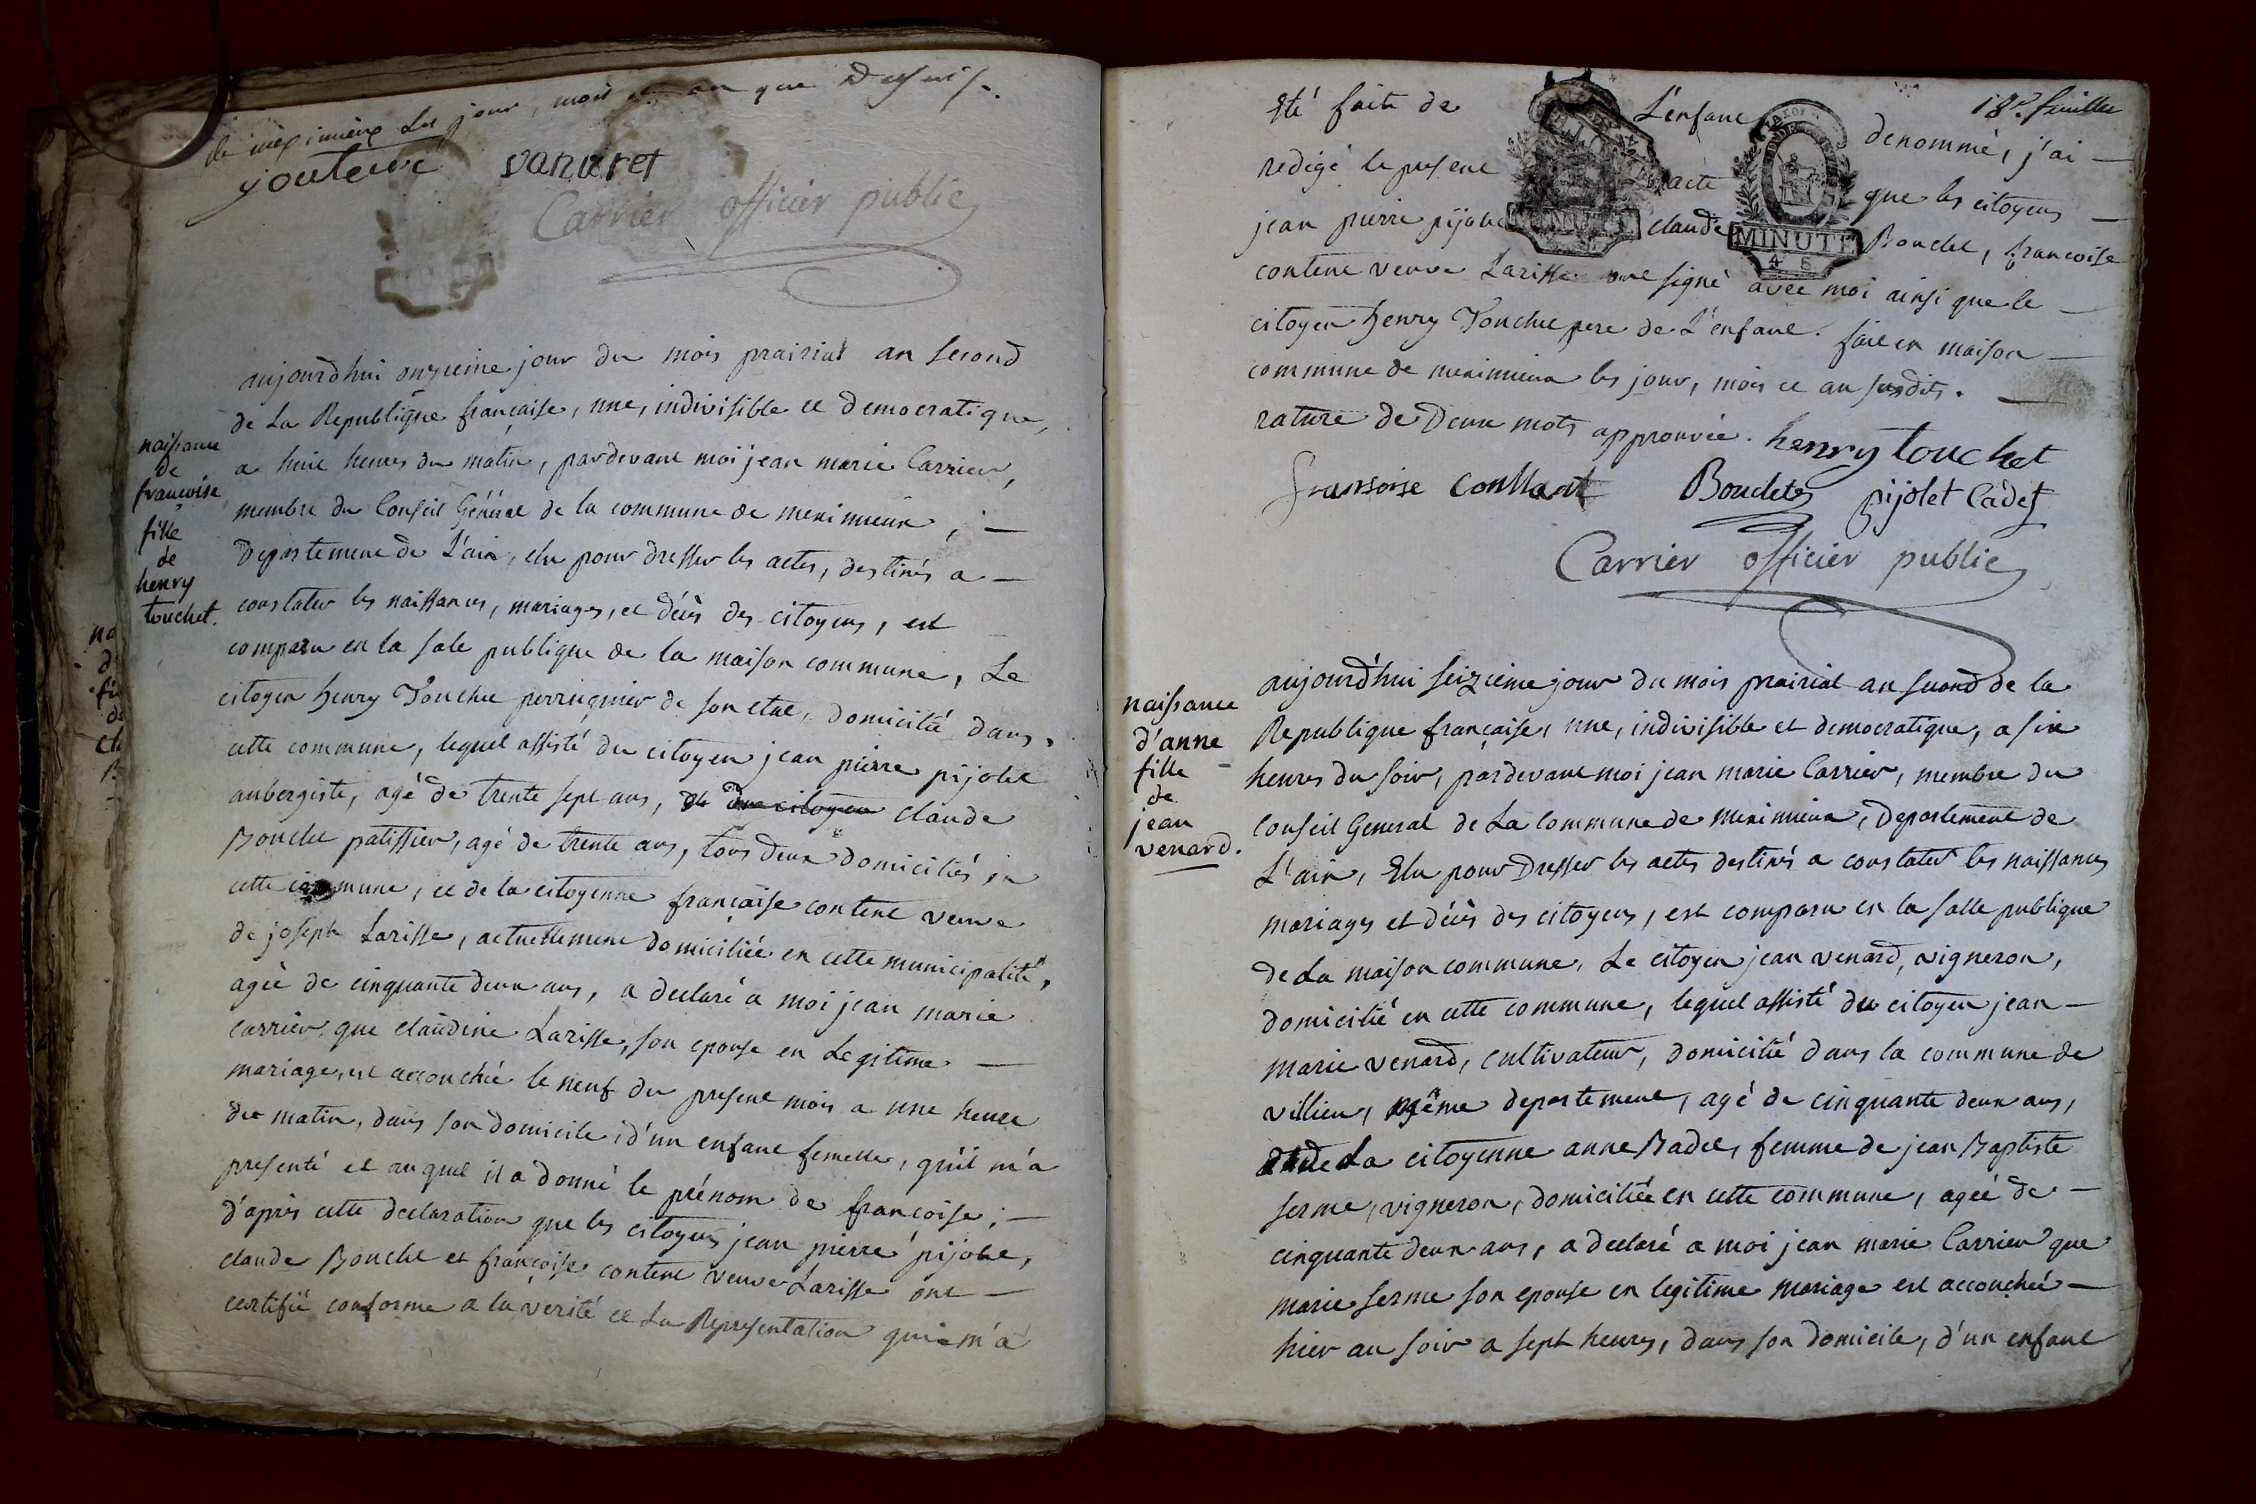 de meximieux les jour, mois et an que Dessus.
jouteur vanaret
Carrier officier public
naissance
de
francoise
fille
de
henry
touchet.
aujourd'hui onzieme jour du mois prairial an second
de La Republique française, une, indivisible et democratique,
a huit heures du matin, pardevant moi jean marie Carrier,
membre du Conseil Général de la commune de meximieux,
Departement de L'ain, elu pour dresser les actes, destinés a
constater les naissances, mariages, et décès des citoyens, est
comparu en la sale publique de la maison commune, Le
citoyen henry Touchet perruquier de son etat, domicilié dans
cette commune, lequel assisté du citoyen jean pierre pijolet
aubergiste, agé de trente sept ans, du citoyen claude
Bouchet patissier, agé de trente ans, tous deux domiciliés en
cette commune, et de la citoyenne françoise contant veuve
de joseph Larisse, actuellement domiciliée en cette municipalité,
agée de cinquante deux ans, a declaré a moi jean marie
carrier que claudine Larisse, son epouse en Legitime
mariage, est accouchée le neuf du present mois a une heure
du matin, dans son domicile, d'un enfant femelle, qu'il m'a
presenté et auquel il a donné le prénom de françoise;
d'après cette declaration que les citoyens jean pierre pijolet,
claude Bouchet et françoise contant veuve Larisse ont
certifié conforme a la verité et La Representation qui m'a
18e. feuillet
Eté faite de L'enfant denommé, j'ai
redigé le present acte que les citoyens
jean pierre pijolet claude Bouchet, francoise
MINUTE
4 S
contant veuve Larisse ont signé avec moi ainsi que le
citoyen henry Touchet pere de L'enfant. fait en maison
commune de meximieux les jour, mois et an susdits.
rature de Deux mots approuvée. henry touchet
fransoise Conttant Bouchet pijolet Cadet
Carrier officier public
naissance
d'anne
fille
de
jean
venard.
aujourd'hui seizieme jour du mois prairial an second de la
Republique française, une, indivisible et democratique, a six
heures du soir, pardevant moi jean marie Carrier, membre du
Conseil General de La commune de meximieux, Departement de
L'ain, Elu pour Dresser les actes destinés a constater les naissances
mariages et décès des citoyens, est comparu en la salle publique
de La maison commune, Le citoyen jean venard, vigneron,
domicilié en cette commune, lequel assisté du citoyen jean
marie venard, cultivateur, domicilié dans la commune de
villieu, même departement, agé de cinquante deux ans,
et de La citoyenne anne Badet, femme de jean Baptiste
serme, vigneron, domiciliée en cette commune, agée de
cinquante deux ans, a declaré a moi jean marie Carrier que
marie serme son epouse en legitime mariage est accouchée
hier au soir a sept heures, dans son domicile, d'un enfant